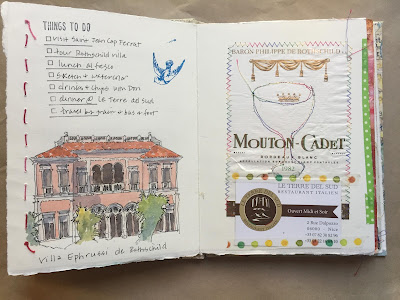 THINGS TO DO
visit Saint Jean Cap Ferrat
tour Rothschild villa
lunch @
sketch + watercolor
drinks + chips with Dori
dinner @ Le Terre del Sud
travel by train + bus + foot
Villa Ephrussi de Rothschild
BARON PHILIPPE DE ROTHSCHILD
MOUTON-CADET
BORDEAUX BLANC
APPELLATION BORDEAUX CONTRÔLÉE
LE TERRE DEL SUD
RESTAURANT ITALIEN
Ouvert Midi et Soir
06000 Nice